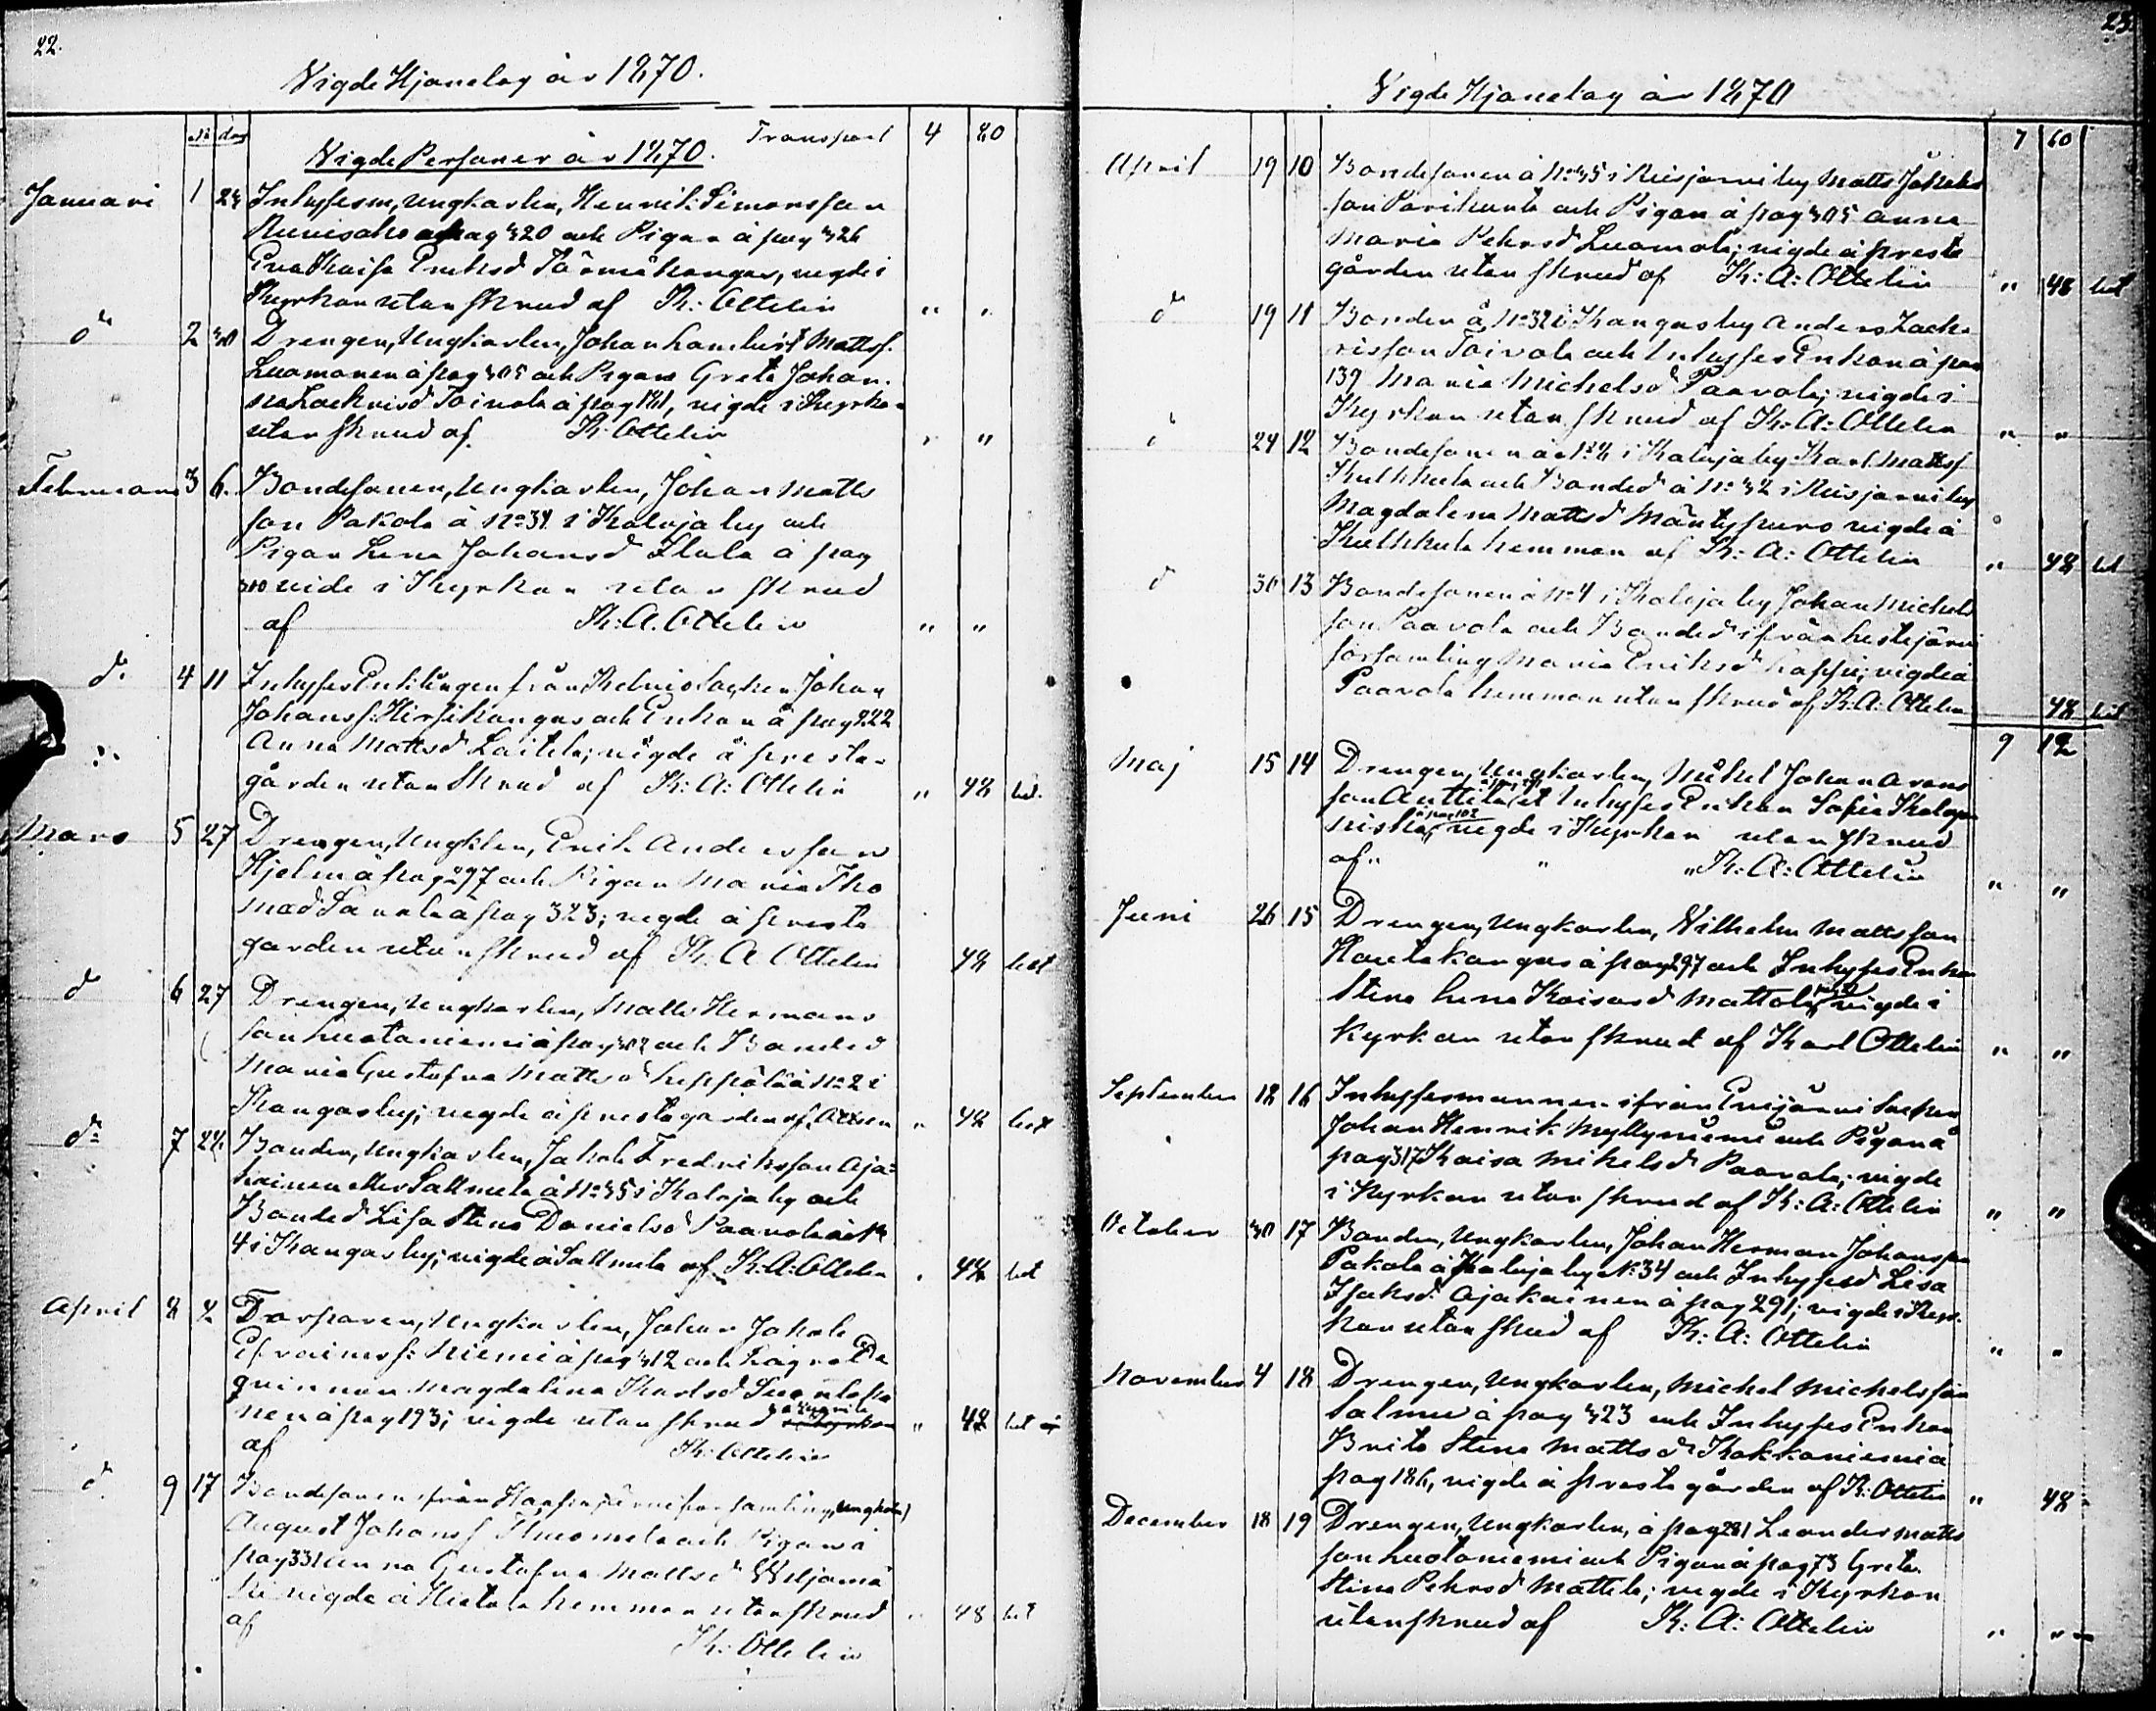 22.
Vigde Hjonelag år 1870.
No dag
Vigde Personer år 1870. Transport 4 80
Januari 1 23 Inhysesm, ungkarlen, Henrik Simonsson
å pag 320 och Pigan å pag 326
Eva Kaisa Eriksd vigde i
Kyrkan utan skrud af K: Ottelin " "
do 2 30 Drengen, Ungkarlen, Johan Mattss.
Luomanen å pag 305 och Pigan Greta Johan-
na Toivola å pag 181, vigde i Kyrkan
utan skrud af K. Ottelin " "
Februari 3 6. Bondesonen, Ungkarlen, Johan Matts
son Pakola å No 34 i Kalaja by och
Pigan Lena Johansd å pag
310 vide i Kyrkan utan skrud
af K: A. Ottelin " "
do 4 11 Inhyses Enklingen från Johan
Johanss: Hirsikangas och Enkan å pag 222
Anna Mattsd Laitila; vigde å preste-
gården utan Skrud af K: A: Ottelin " 48 bet.
Mars 5 27 Drengen, Ungklen, Erik Andersson
Hjelm å pag 297 och Pigan Maria Tho
masd å pag 323; vigde å preste
garden utan skrud af K. A Ottelin 48 bet
d 6 27 Drengen, Ungkarlen, Matts Hermans
son Luotoniemi å pag 302 och Bonded
Maria Gustafva Mattsd Leppälä å No 2 i
Kangas by; vigde å prestegarden af " 48 bet
do 7 28. Bonden, Ungkarlen, Jakob Fredriksson Aja-
kainen eller Sallmela å No 35 i Kalaja by och
Bonded Lisa Stina Danielsd Paavola å No
4 i Kangas by; vigde å Sallmela af K: A: Ottelin . 48 bet
April 8 2 Torparen, Ungkarlen, Johan Jakob
Efraimss: Niemi å pag 312 och
qvinnan Magdalena Karlsd
nen å pag 193; vigde utan skrud " 48 bet
af K: Ottelin
d 9 17 Bondesonen från Haapajärvi församling, ungkarl
August Johanss Tuomela och Pigan å
pag 331 Anna Gustafva Mattsd Viljamä
ki vigde å Hietala hemman utan skrud " 48 bet
af
K: Ottelin
23.
Vigde Hjonelag år 1870
7 60
April 19 10 Bondesonen å No 35 i Reisjärvi by Matts Jakobs
son Parihanta och Pigan å pag 305 Anna
Maria Pehrsd Luomala; vigde å preste
gården utan skrud af K: A: Ottelin " 48 bet
d 19 11 Bonden å No 32 i Kangas by Anders Zach-
risson Toivola och Inhyses Enkan å pag
139 Maria Michelsd Paavola; vigde i
Kyrkan utan skrud af K: A: Ottelin " "
d 24 12 Bondesonen å No 6 i Kalaja by Karl Mattss
Kulkkula och Bonded å No 32 i Reisjärvi by
Magdalena Mattsd Mäntypuro vigde å
Kulkkula hemman af K: A: Ottelin " 48 bet
d 30 13 Bondesonen å No 4 i Kalaja by Johan Michels
son Paavola och Bonded ifrån Lestijärvi
församling Maria Eriksd Rappi; vigde å
Paavola hemman utan skrud af K: A: Ottelin 48 bet
9 12
Maj 15 14 Drengen, Ungkarlen, Mikel Johan Arons
son Anttila et Inhyses Enkan Sofia
å pag 102
vigde i Kyrkan utan skrud
af " " " K: A: Ottelin " "
Juni 26 15 Drengen, Ungkarlen, Vilhelm Mattsson
Hautakangas å pag 297 och Inhyses Enkan
Stina Lena Kaisasd Mattola vigde i
Kyrkan utan skrud af Karl Ottelin " "
September 18 16 Inhysesmannen ifrån Evijärvi Socken
Johan Henrik Myllyniemi och Pigan å
pag 317 Kaisa Mikelsd Paavola; vigde
i Kyrkan utan skrud af K: A: Ottelin " "
October 30 17 Bonden, Ungkarlen, Johan Herman Johansson
Pakola å Kalaja by No 34 och Inhysesd Lisa
Isaksd. Ajakainen å pag 291; vigde i Kyr-
kan utan skrud af K: A: Ottelin " "
November 4 18 Drengen, Ungkarlen, Michel Michelsson
Salmu å pag 323 och Inhyses Enkan
Brita Stina Mattsd Kokkoniemi å
pag 186, vigde å prestegården af K: Ottelin " 48
December 18 19 Drengen, Ungkarlen, å pag 281 Leander Matts
son Luotoniemi och Pigan å pag 73 Greta
Stina Pehrsd Mattila; vigde i Kyrkan
utan skrud af K: A: Ottelin " "